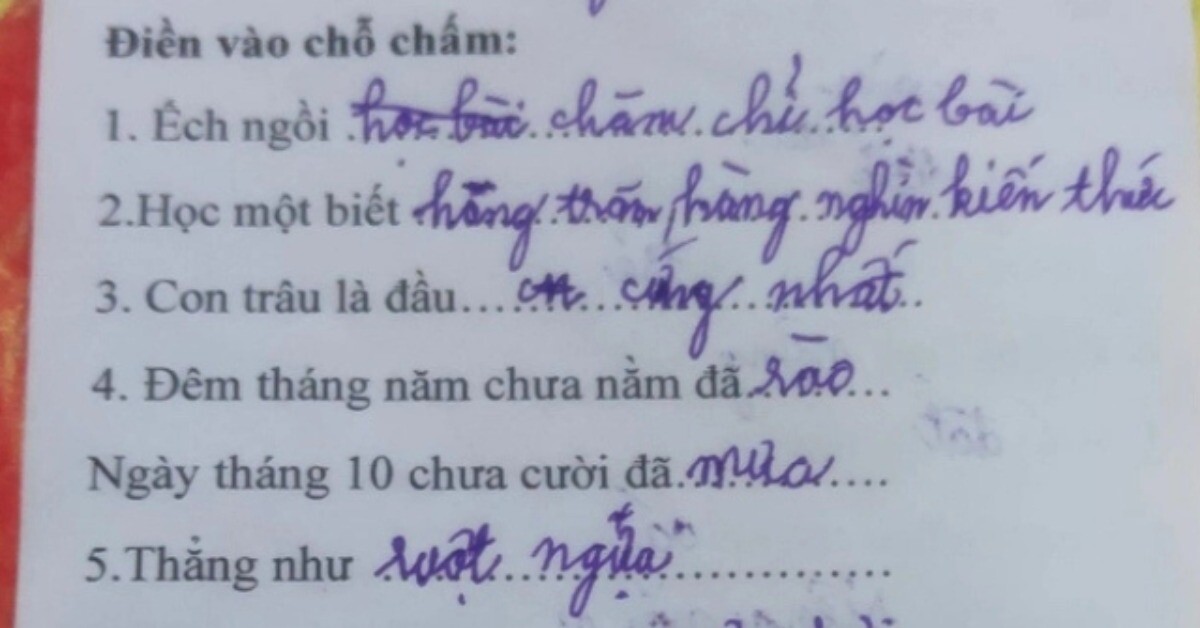 Điền vào chỗ chấm:
1. Ếch ngồi học bài chăm chỉ học bài
2.Học một biết hàng trăm, hàng nghìn kiến thức
3. Con trâu là đầu.... cứng nhất..
4. Đêm tháng năm chưa nằm đã rào...
Ngày tháng 10 chưa cười đã mưa....
5.Thẳng như ruột ngựa